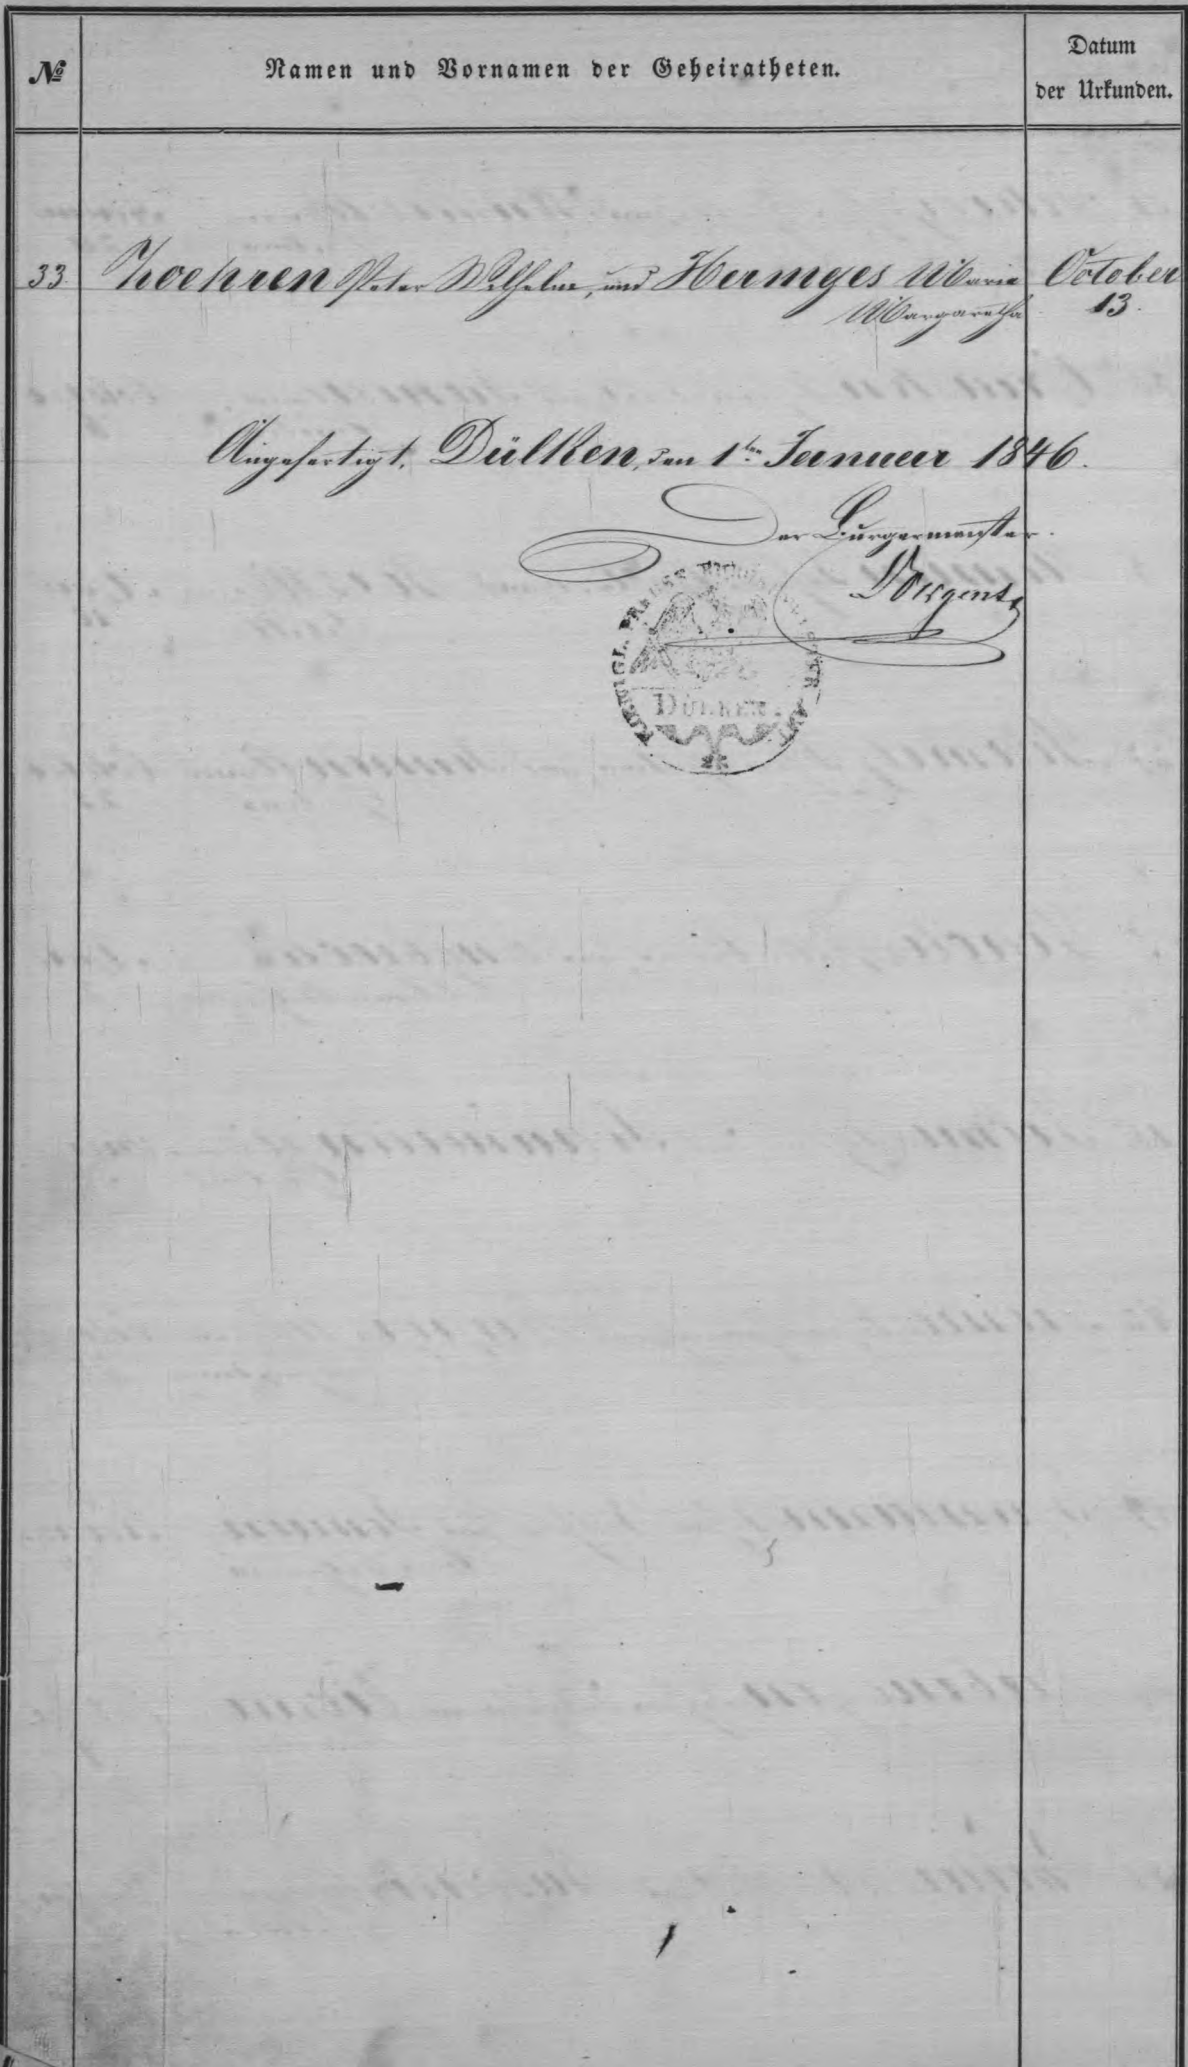 №
Namen und Vornamen der Geheiratheten.
Datum
der Urkunden.
33. Zoehren Peter Wilhelm, und Hermges Maria October
Margaretha 13.
Angefertigt, Dülken, den 1ten Januar 1846.
Der Burgermeister.
KÖNIGL. PREUSS.
DÜLKEN